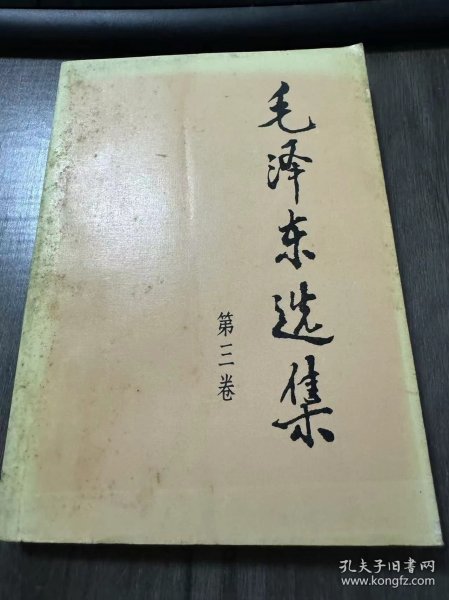 毛泽东选集
第三卷
孔夫子旧书网
www.kongfz.com